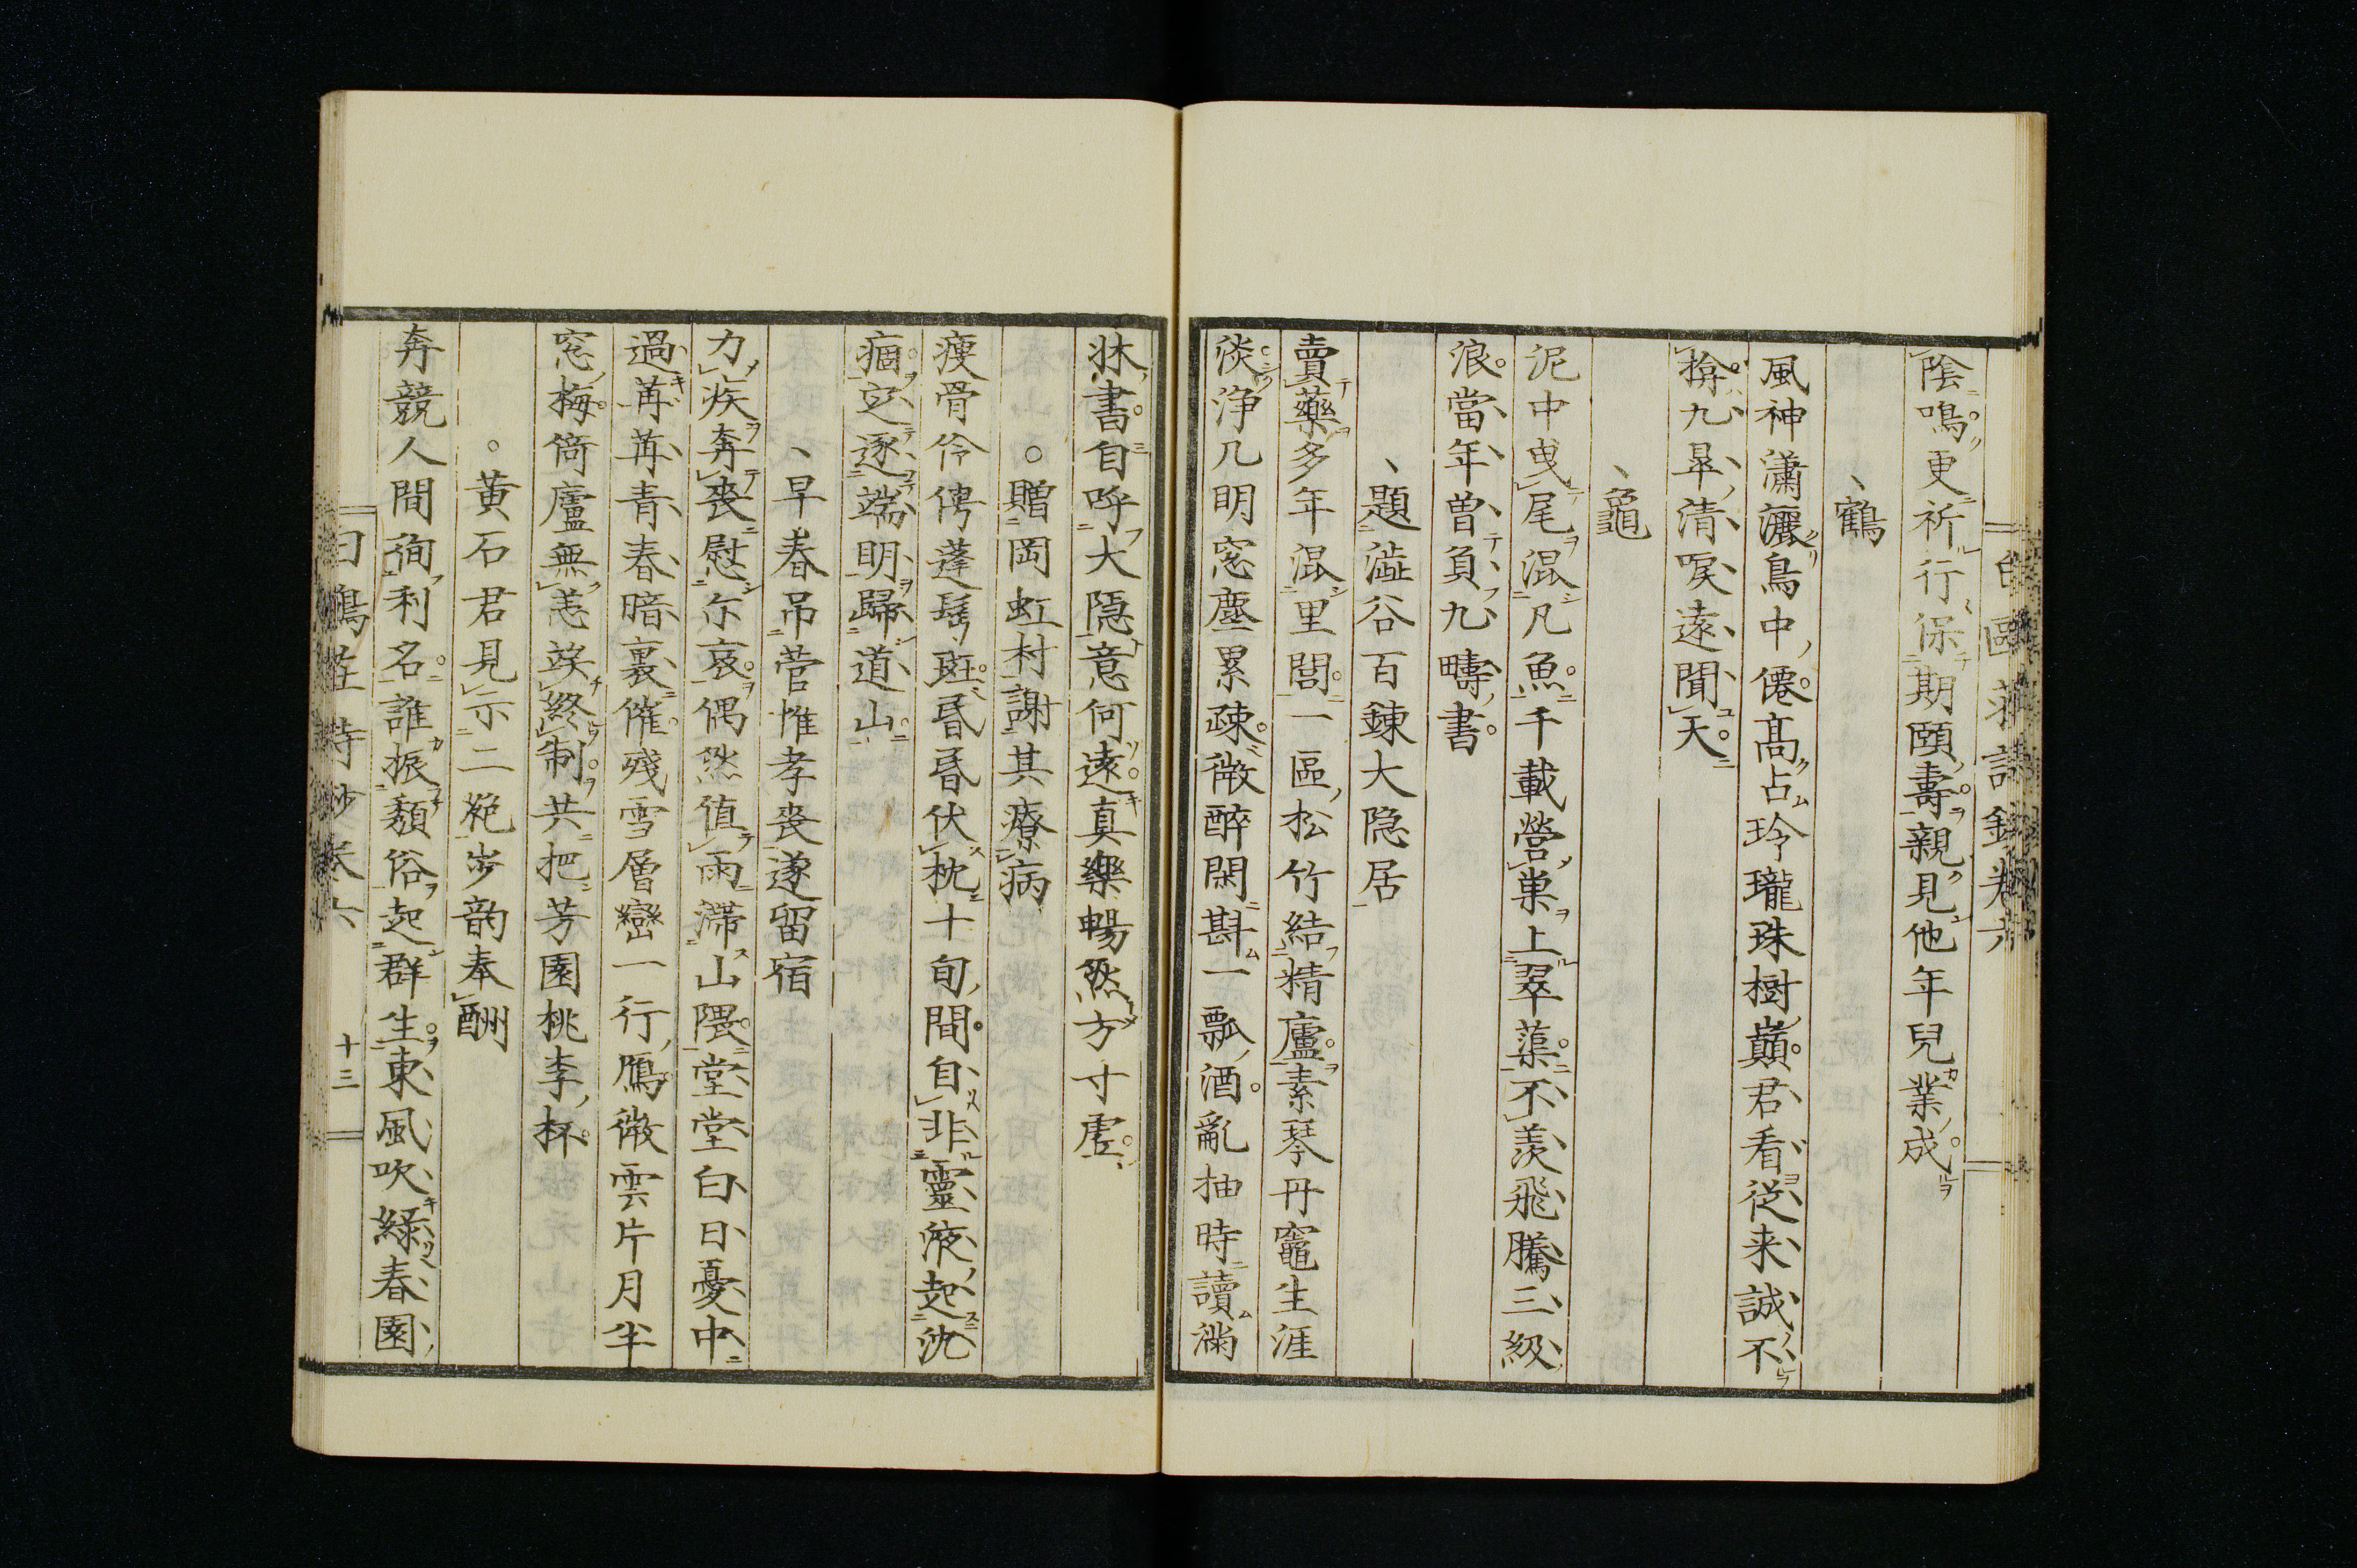 陰鳴更祈行保期頤壽親見他年兒業成
鶴
風神瀟灑鳥中僊高占玲瓏珠樹巔君看從来誠不
揜九皐清唳遠聞天
龜
泥中曳尾混凡魚千載營巣上翠蕖不羨飛騰三級
浪當年曽負九疇書
題澁谷百鍊大隐居
賣藥多年混里閭一區松竹結精廬素琴丹竈生涯
淡浄几明窓塵累疎微醉閑斟一瓢酒亂抽時讀滿
牀書自呼大隠意何遠真樂暢然方寸虚
贈岡虹村謝其療病
痩骨伶俜蓬髩斑昏昏伏枕十旬間自非靈液起沈
痼定逐端明歸道山
早春吊菅惟孝喪遂留宿
力疾奔喪慰尓哀偶然值雨滯山隈堂堂白日憂中
過苒苒青春暗裏催殘雪層巒一行鴈微雲片月半
窓梅倚廬無恙竢終制共把芳園桃李杯
黄石君見示二絶歩韵奉酬
奔競人間徇利名誰振頽俗起群生東風吹綠春園
十三